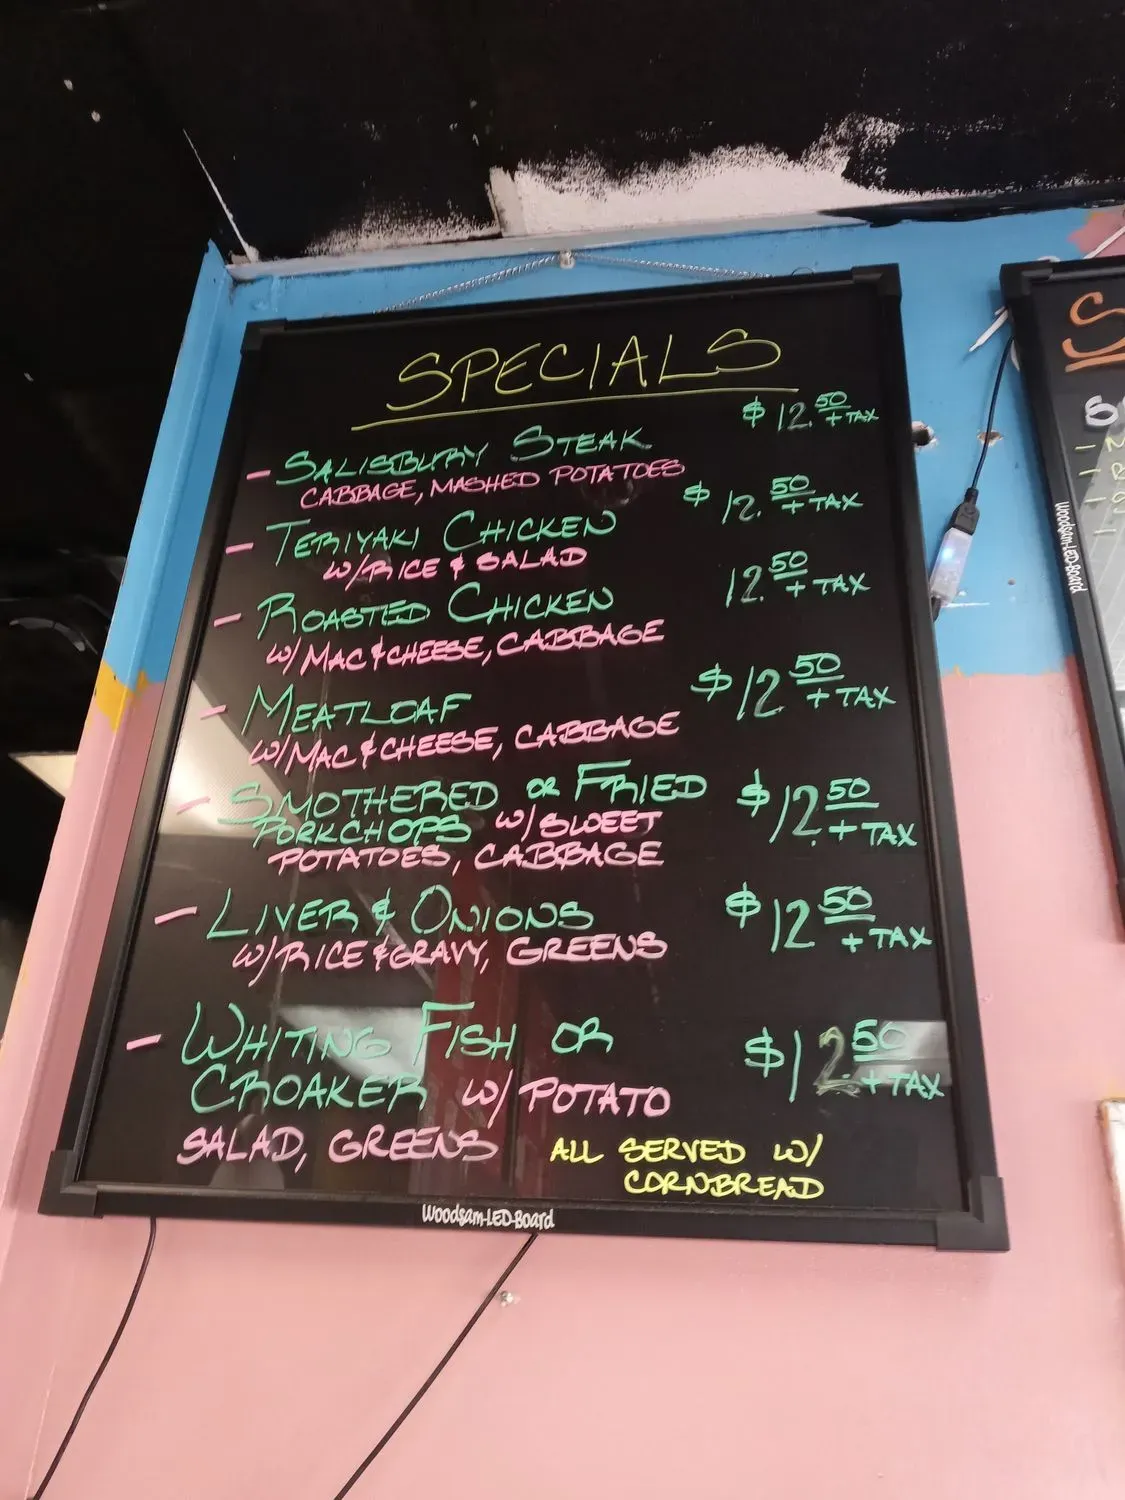 SPECIALS
- SALISBURY STEAK $12.50 + TAX
CABBAGE, MASHED POTATOES
- TERIYAKI CHICKEN $12.50 + TAX
W/RICE & SALAD
- ROASTED CHICKEN 12.50 + TAX
W/ MAC & CHEESE, CABBAGE
- MEATLOAF $12.50 + TAX
W/MAC & CHEESE, CABBAGE
- SMOTHERED OR FRIED $12.50 + TAX
PORKCHOPS W/ SWEET
POTATOES, CABBAGE
- LIVER & ONIONS $12.50 + TAX
W/RICE & GRAVY, GREENS
- WHITING FISH OR $12.50 + TAX
CROAKER W/ POTATO
SALAD, GREENS
ALL SERVED W/
CORNBREAD
Woodsam-LED-Board
Woodsam-LED-Board